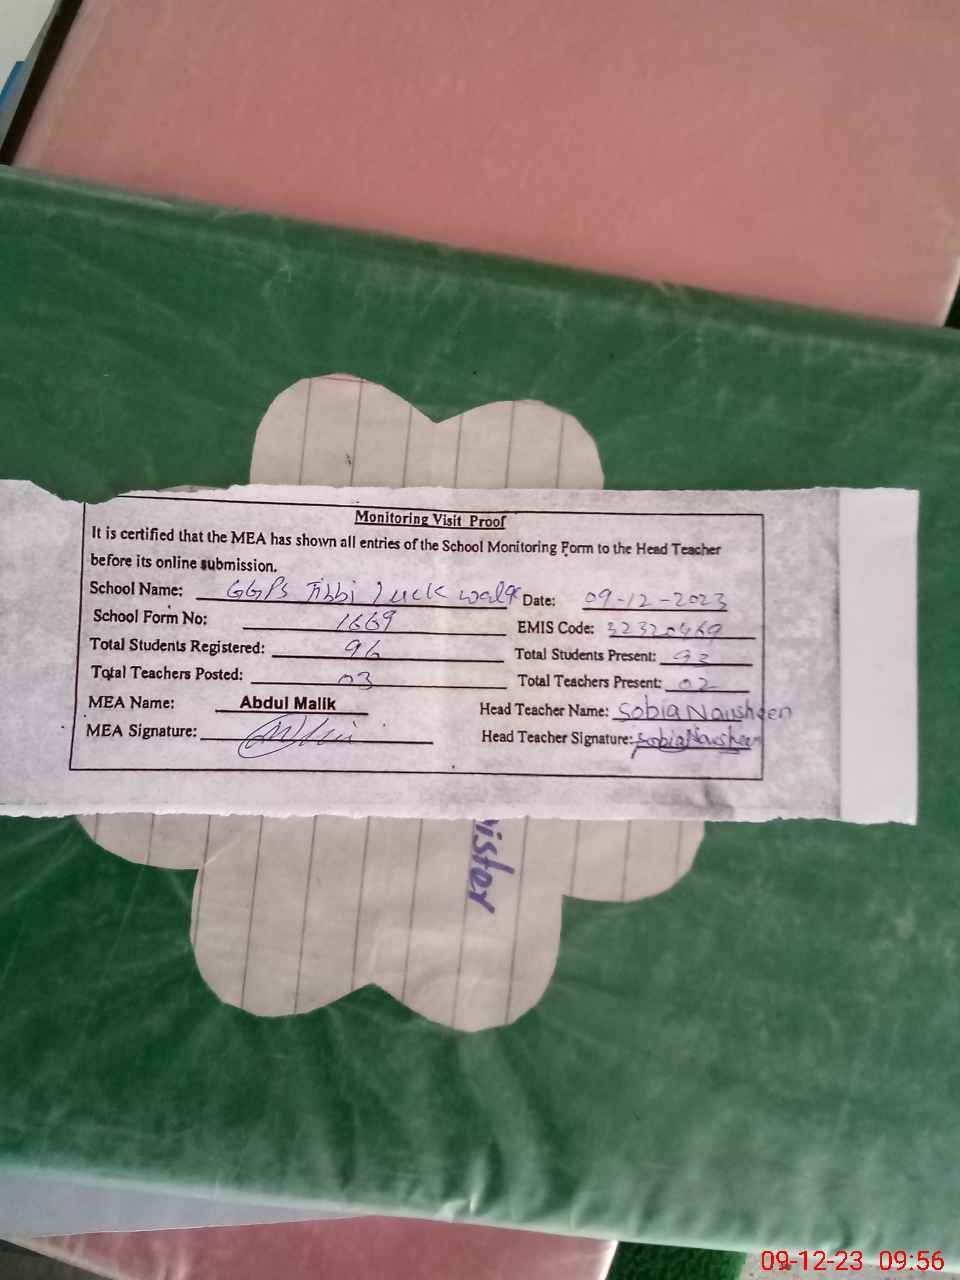 Monitoring Visit Proof
It is certified that the MEA has shown all entries of the School Monitoring Form to the Head Teacher
before its online submission.
School Name: GGPS Tibbi Luck wala Date: 09-12-2023
School Form No: 1669 EMIS Code: 32320469
Total Students Registered: 96 Total Students Present: 93
Total Teachers Posted: 03 Total Teachers Present: 02
MEA Name: Abdul Malik Head Teacher Name: Sobia Nausheen
MEA Signature: Head Teacher Signature: Sobia Nausheen
ister
09-12-23 09:56